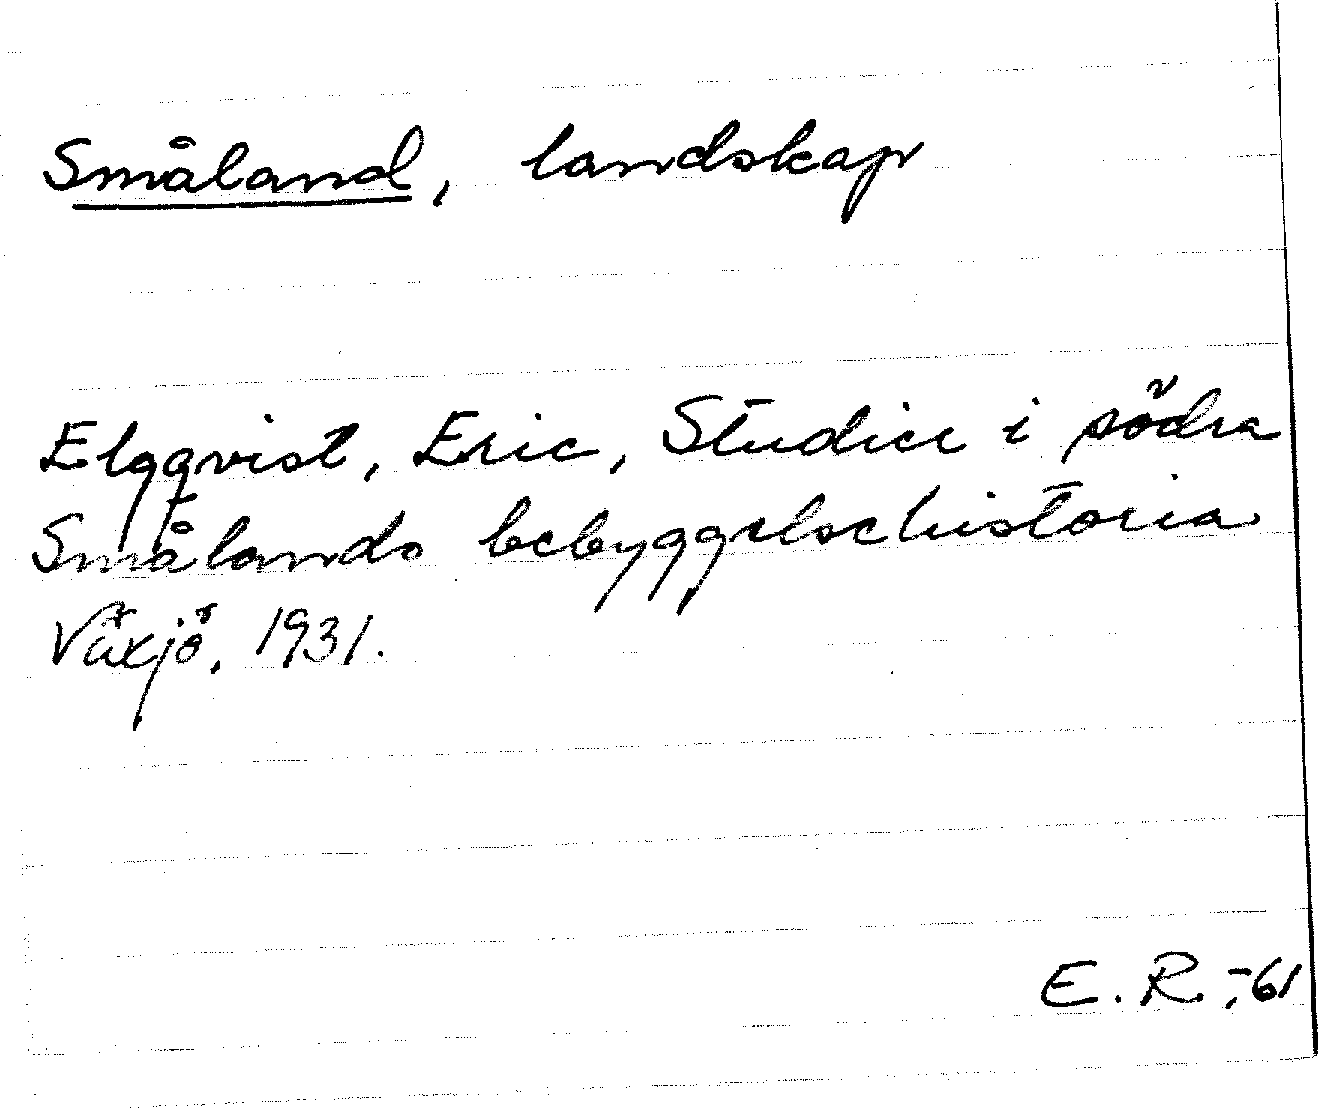 Småland, landskap
Elgqvist, Eric, Studier i södra
Smålands bebyggelsehistoria
Växjö, 1931.
E. R. -61